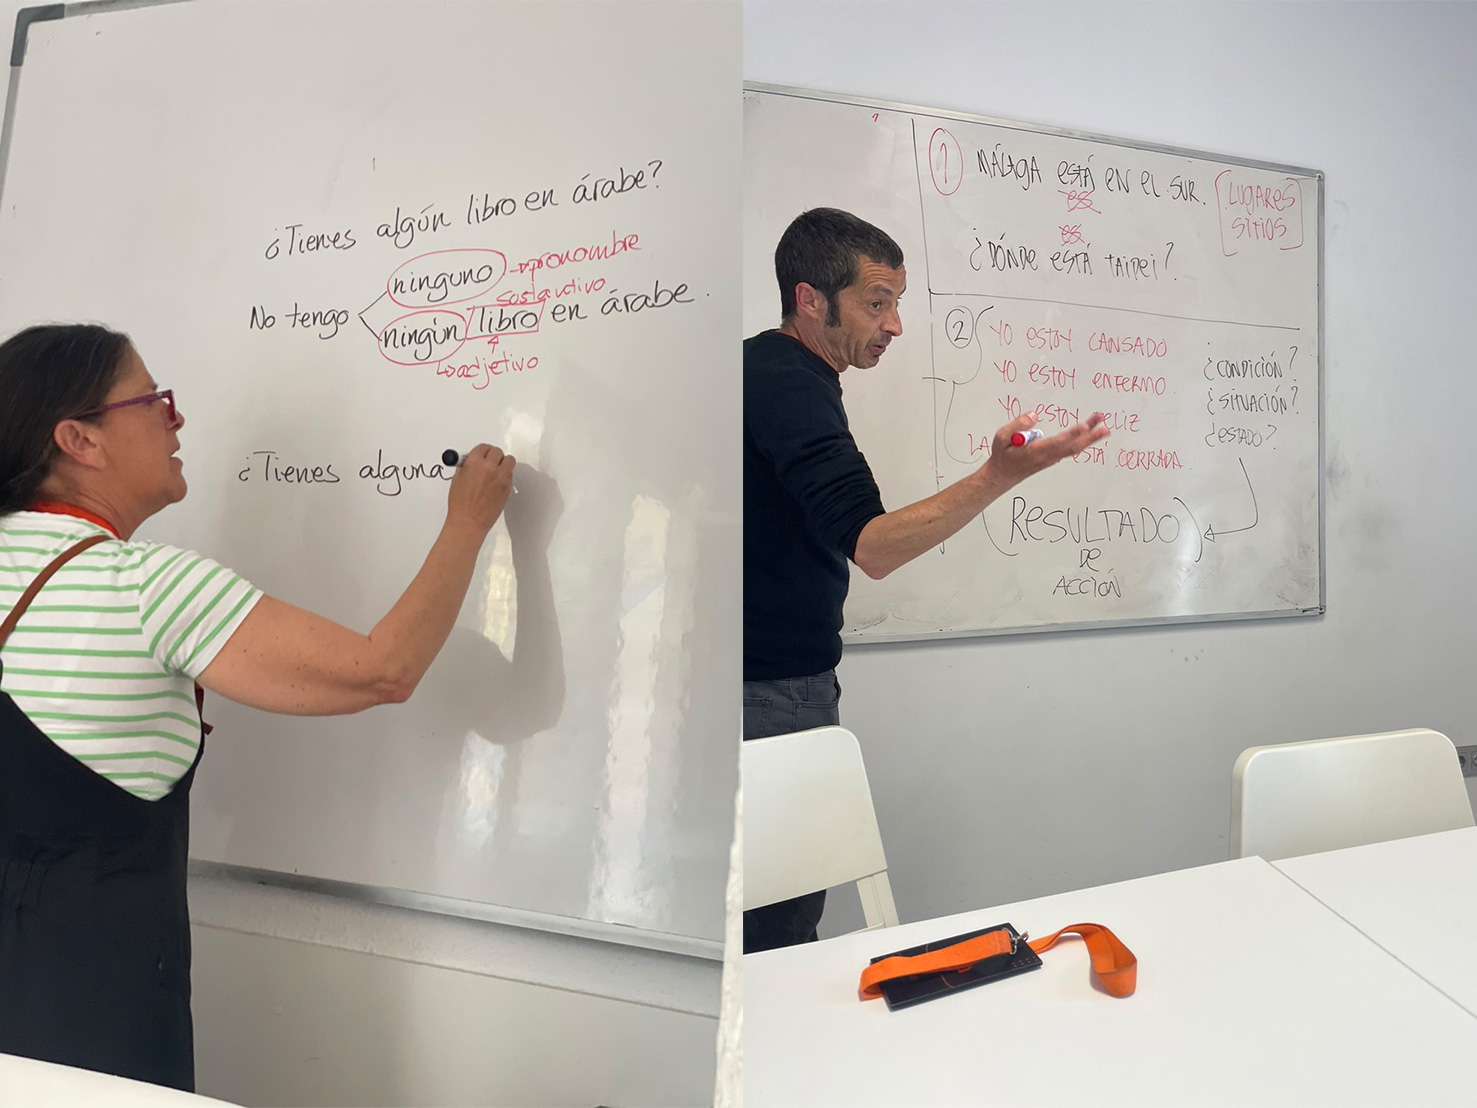 ¿Tienes algún libro en árabe?
ninguno → pronombre
sustantivo
No tengo
ningún libro en árabe.
↳ adjetivo
¿Tienes alguna
① MÁLAGA ESTÁ EN EL SUR.
es
LUGARES
SITIOS
es
¿DÓNDE ESTÁ TAIPEI?
② YO ESTOY CANSADO
YO ESTOY ENFERMO
YO ESTOY FELIZ
LA ESTÁ CERRADA
¿CONDICIÓN?
¿SITUACIÓN?
¿ESTADO?
(RESULTADO)
DE
ACCIÓN